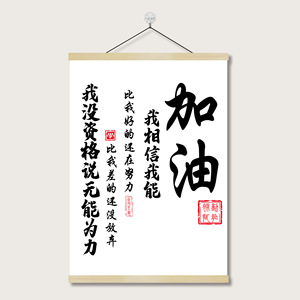 加油
我相信我能
比我好的还在努力
比我差的还没放弃
我没资格说无能为力